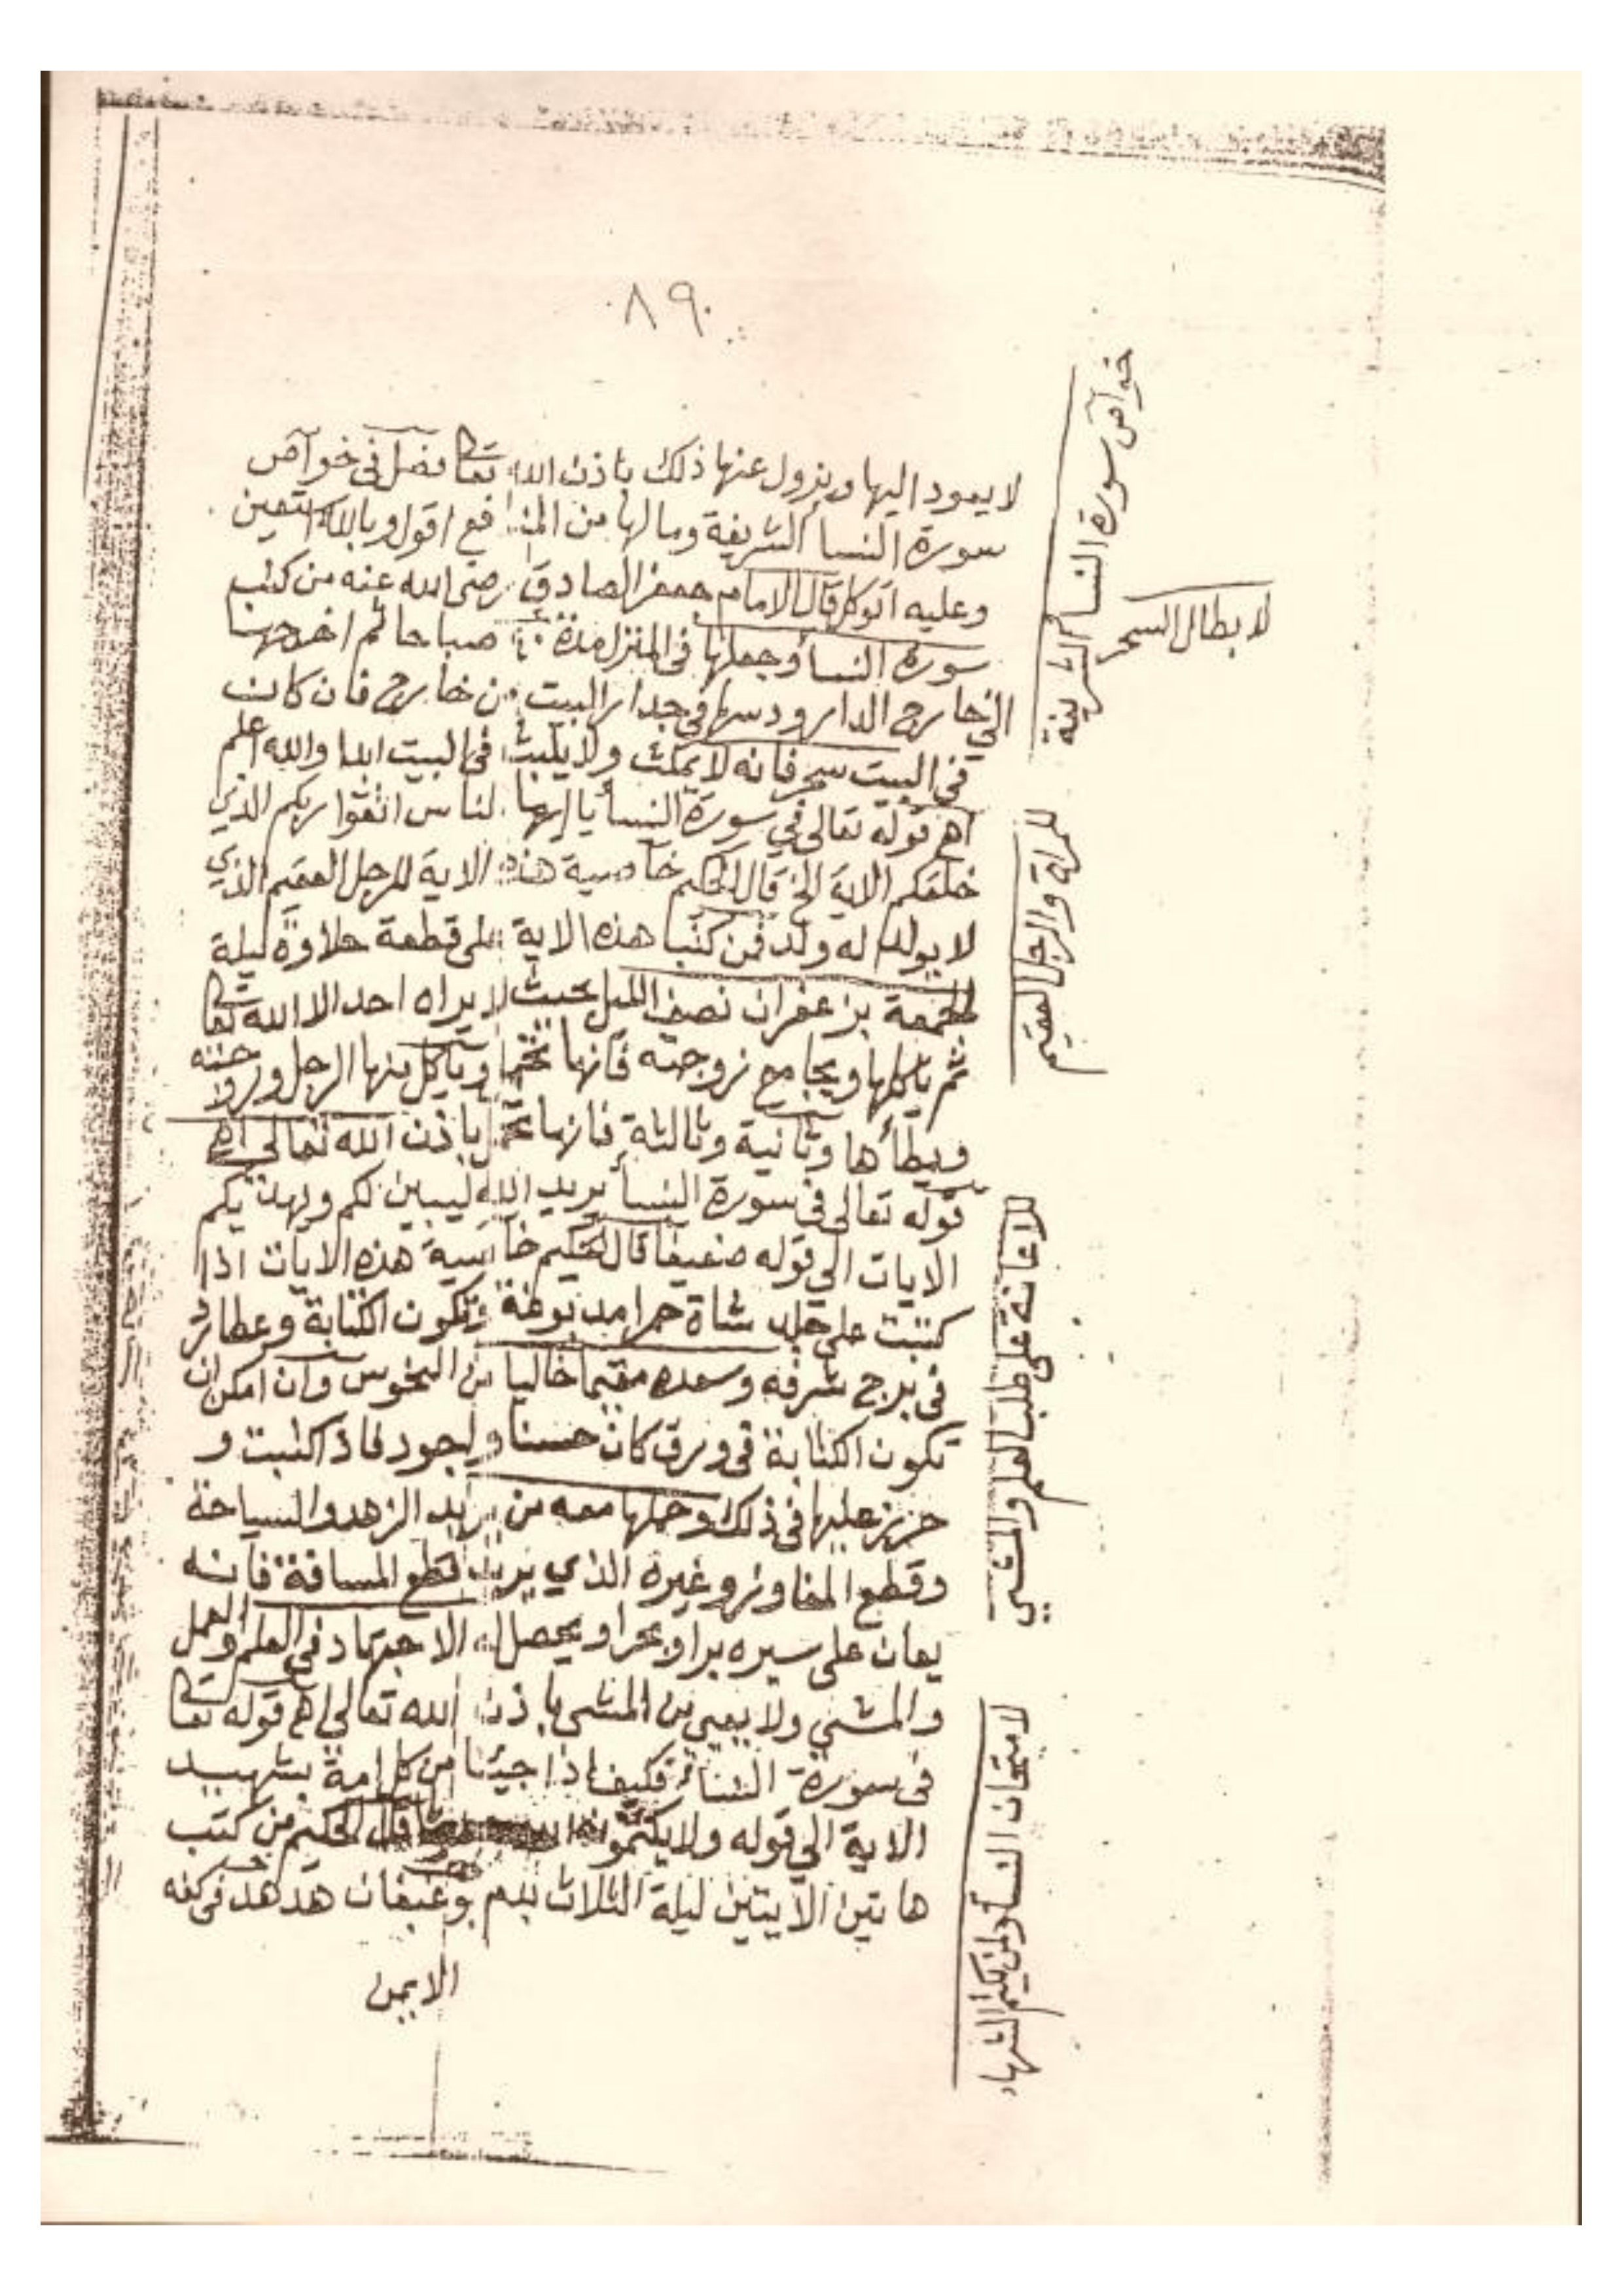 ٨٩
لا يعود اليها ويزول عنها ذلك باذن الله تعا فصل في خواص
سورة النسا الشريفة وما لها من المنافع اقول وبالله استعين
وعليه اتوكل قال الامام جعفر الصادق رضي الله عنه من كتب
سورة النسا وجعلها في المنزل مدة ٤٠ صباحا ثم اخرجها
الي خارج الدار ودسها في جدار البيت من خارج فان كان
في البيت سحر فانه لا يمكث ولا يلبث في البيت ابدا والله اعلم
اهـ قوله تعالى في سورة النسا يا ايها الناس اتقوا ربكم الذي
خلقكم الاية الخ قال الحكيم خاصية هذه الاية للرجل العقيم الذي
لا يولد له ولد فمن كتب هذه الاية على قطعة حلاوة ليلة
الجمعة بزعفران نصف الليل بحيث لا يراه احد الا الله تعا
ثم ياكلها ويجامع زوجته فانها تحمل وياكل منها الرجل وزوجته
ويطأها وثانية وثالثة فانها تحمل باذن الله تعالى اهـ
قوله تعالى في سورة النسا يريد الله ليبين لكم ويهديكم
الايات الي قوله ضعيفا قال الحكيم خاصية هذه الايات اذا
كتبت على جلد شاة حمرا مدبوغة وتكون الكتابة وعطارد
في برج شرفه وسعده مقيما خاليا من النحوس وان امكن ان
تكون الكتابة في ورق كان حسنا واجود فاذا كتبت و
حرز عليها في ذلك وحملها معه من يريد الزهد والسياحة
وقطع المفاوز وغيره الذي يريد قطع المسافة فانه
يعان على سيره برا وبحرا ويحصل له الاجتهاد في العلم والعمل
والمشي ولا يعيي من المشي باذن الله تعالي اهـ قوله تعا
في سورة النسا فكيف اذا جيئنا من كل امة بشهيد
الاية الي قوله ولا يكتمون الله قال الحكيم من كتب
هاتين الايتين ليلة الثلاث بدم هدهد في كفه
الايمن
خواص سورة النسا الشريفة
لابطال السحر
للمراة والرجل العقيم
للاعانة على طلب العلم والمشي
لامتحان النسا ولمن يكتم الشهاد